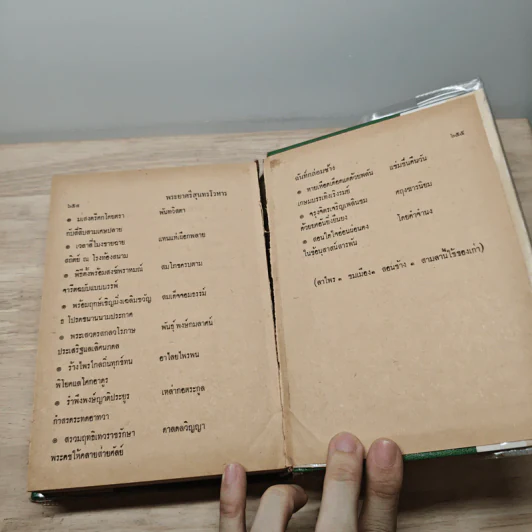 ๖๕๔ พระยาศรีสุนทรโวหาร
พันธวิสดา
ทับที่สิบสามเศษปลาย
๏ เจดาสี่โมงชายฉาย แทนแท่เยือกพลาย
สถิตย์ ณ โรงท้องสนาม
๏ พิธีตั้งพร้อมสงฆ์พราหมณ์ สมโภชครบสาม
จารีตฉบับแบบบรรพ์
๏ พร้อมฤกษ์เชิญมิ่งเฉลิมขวัญ สมเด็จจอมธรรม์
ธ โปรดขนานนามประกาศ
๏ พระเสวตรสกลวโรภาษ พันธุ์พงษ์กมลาศน์
ประเสริฐแลเลิศนภดล
๏ ร้างไพรไกลถิ่นทุกข์ทน อาไลยไพรพน
พิไรยแลโศกอาดูร
๏ รำพึงพงษ์ญาติประยูร เหล่ากอตระกูล
กำสรดระทดอาทวา
๏ สรวมฤทธิเทวราชรักษา ศาสดลวิญญา
พระคชให้คลายส่ายศัลย์
๖๕๕
ฉันท์กล่อมช้าง
แช่มชื่นคืนวัน
เกษมบรรเทิงเริงรมย์
๏ จรุงจิตรเจริญเพลินชม คฤงฆารนิยม
ด้วยหทัยยินยง
๏ สอนใดใจอย่อนย่อนคง โดยคำจำนง
ในข้อบุสาสน์สารพัน
(ลาไพร ๏ ชมเมือง๏ สอนช้าง ๏ สามลานี้ใช้ของเก่า)